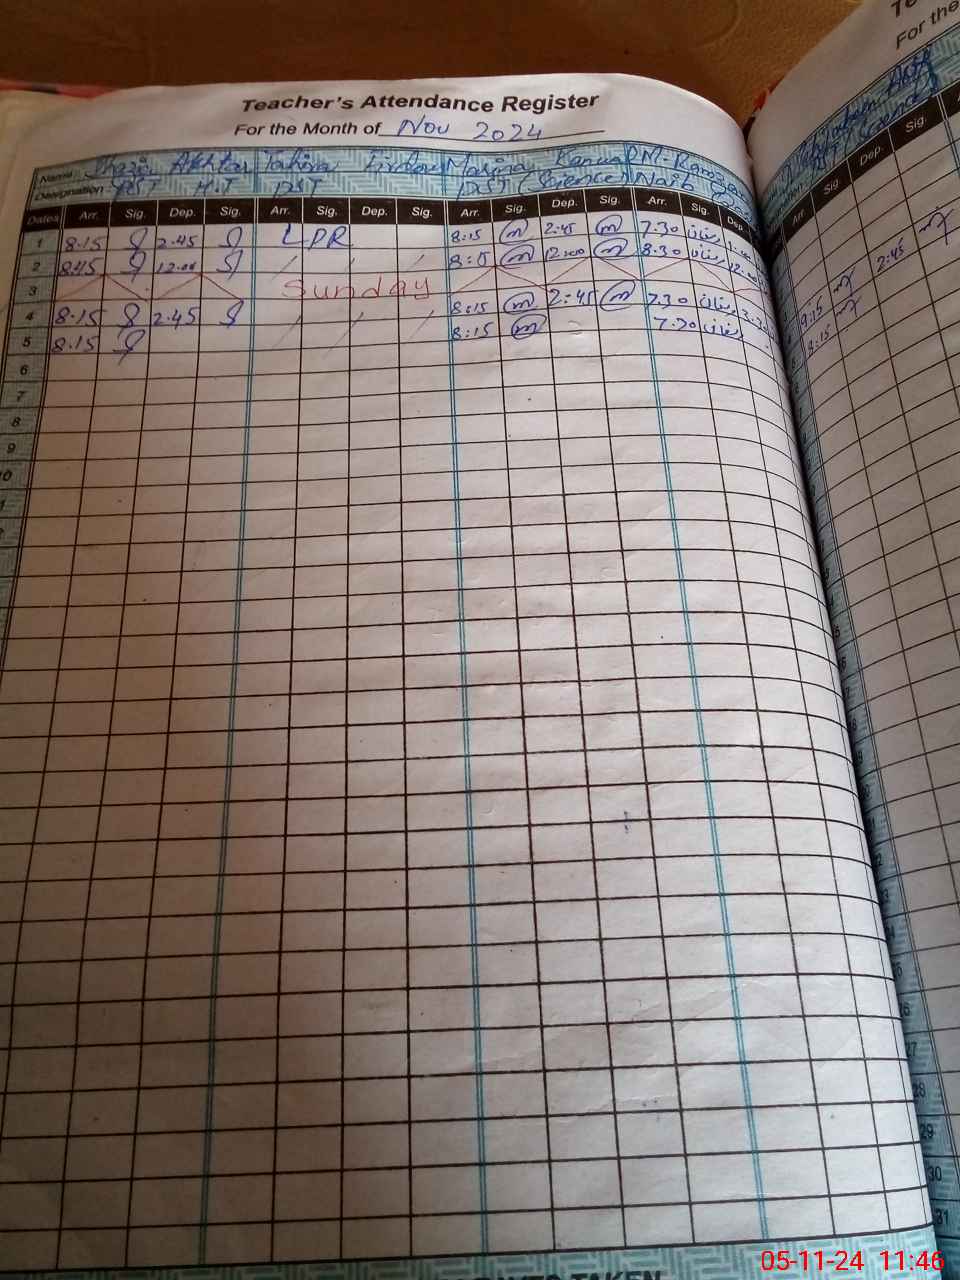 Teacher's Attendance Register
For the Month of Nov 2024
Name: Shazia Akhtar Tahira Firdous Marina Kanwal M. Ramzan
Designation: PST H.T PST PST (Science) Naib
Dates Arr. Sig. Dep. Sig. Arr. Sig. Dep. Sig. Arr. Sig. Dep. Sig. Arr. Sig. Dep.
1 8.15 2.45 LPR 8:15 m 2:45 m 7.30 رمضان
2 8.45 12.00 8:15 m 12:00 m 8.30 رمضان 12.00
3 Sunday
4 8.15 2.45 8:15 m 2:45 m 7.30 رمضان 3.30
5 8.15 8:15 m 7.30 رمضان
6
7
8
9
10
For the
(Science)
Arr Sig. Dep. Sig.
9:15 2:45
8:15
27
28
29
30
31
TAKEN
05-11-24 11:46